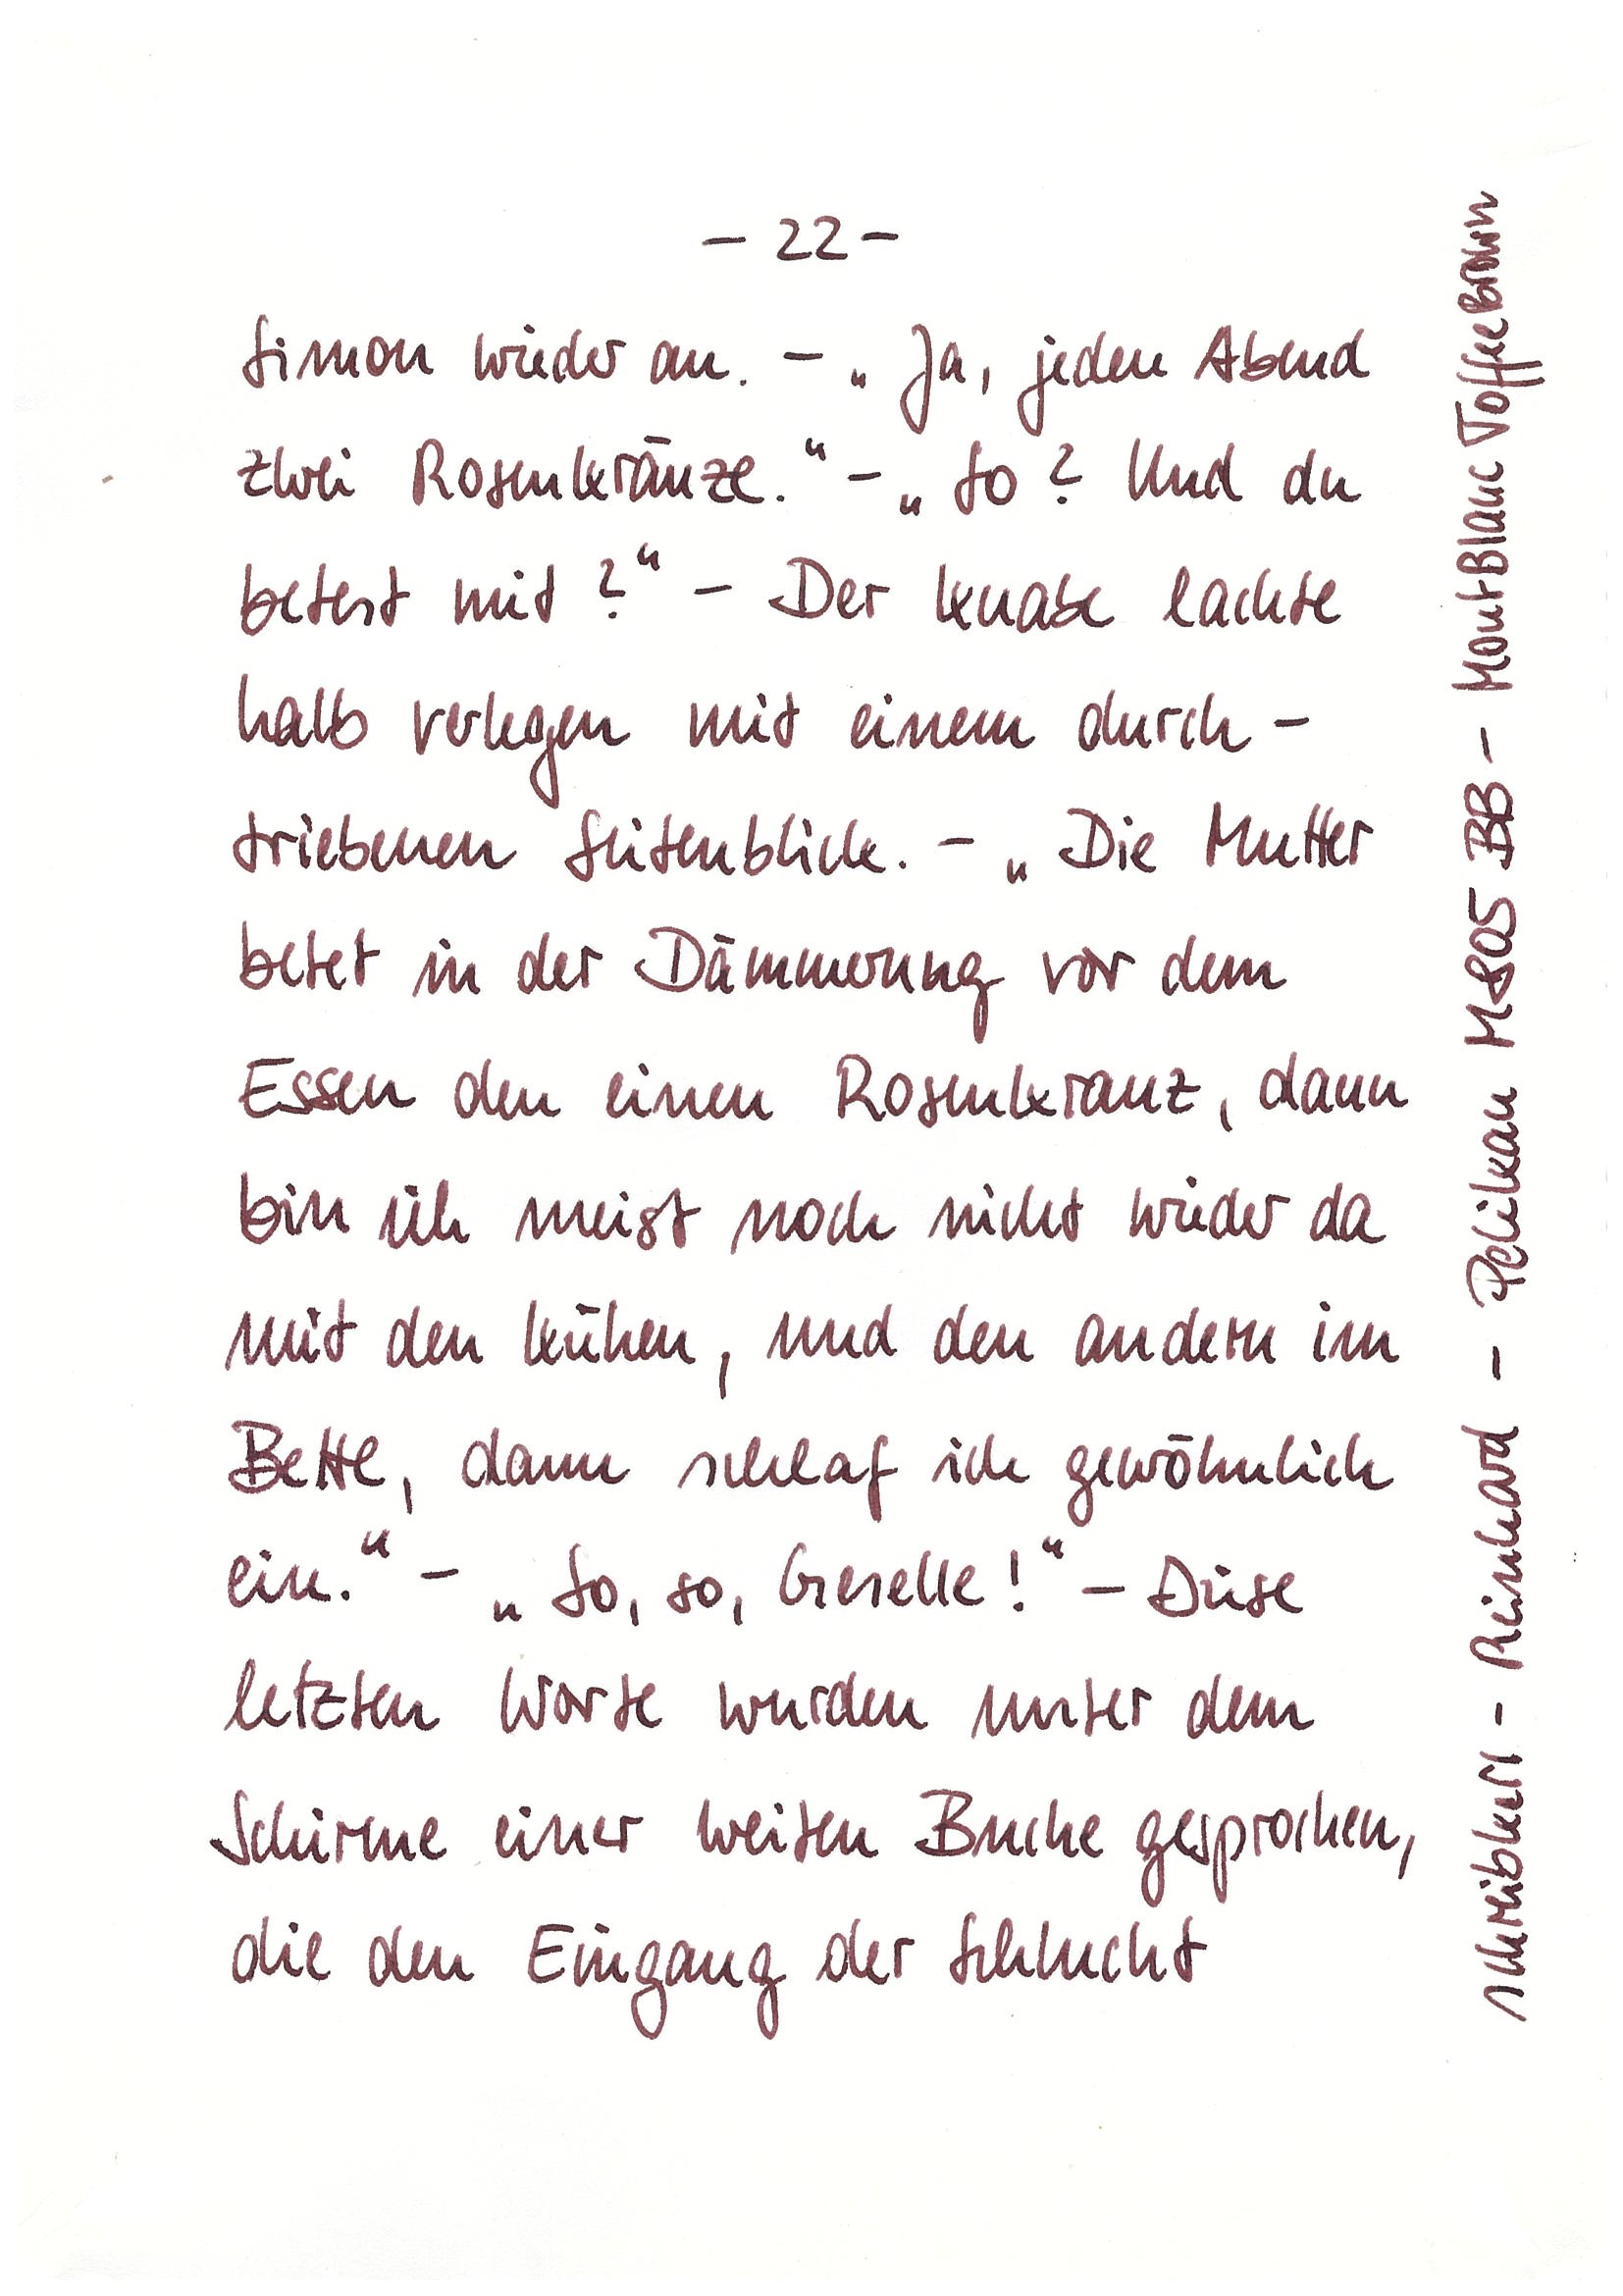 – 22 –
Simon wieder an. – „Ja, jeden Abend
zwei Rosenkränze.“ – „So? Und du
betest mit?“ – Der Knabe lachte
halb verlegen mit einem durch-
triebenen Seitenblick. – „Die Mutter
betet in der Dämmerung vor dem
Essen den einen Rosenkranz, dann
bin ich meist noch nicht wieder da
mit den Kühen, und den andern im
Bette, dann schlaf ich gewöhnlich
ein.“ – „So, so, Geselle!“ – Diese
letzten Worte wurden unter dem
Schirme einer weiten Buche gesprochen,
die den Eingang der Schlucht
schreibkerl – Reinhard – Pelikan M805 BB – MontBlanc Toffee Brown